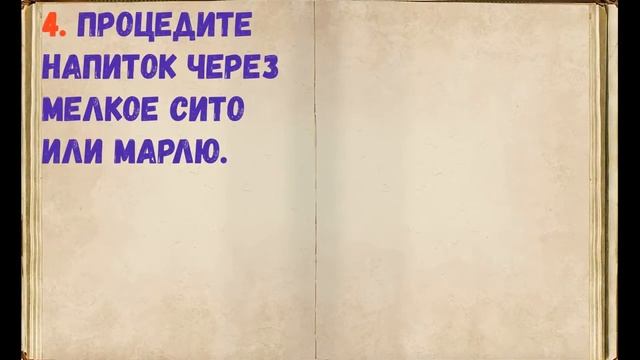 4. ПРОЦЕДИТЕ
НАПИТОК ЧЕРЕЗ
МЕЛКОЕ СИТО
ИЛИ МАРЛЮ.